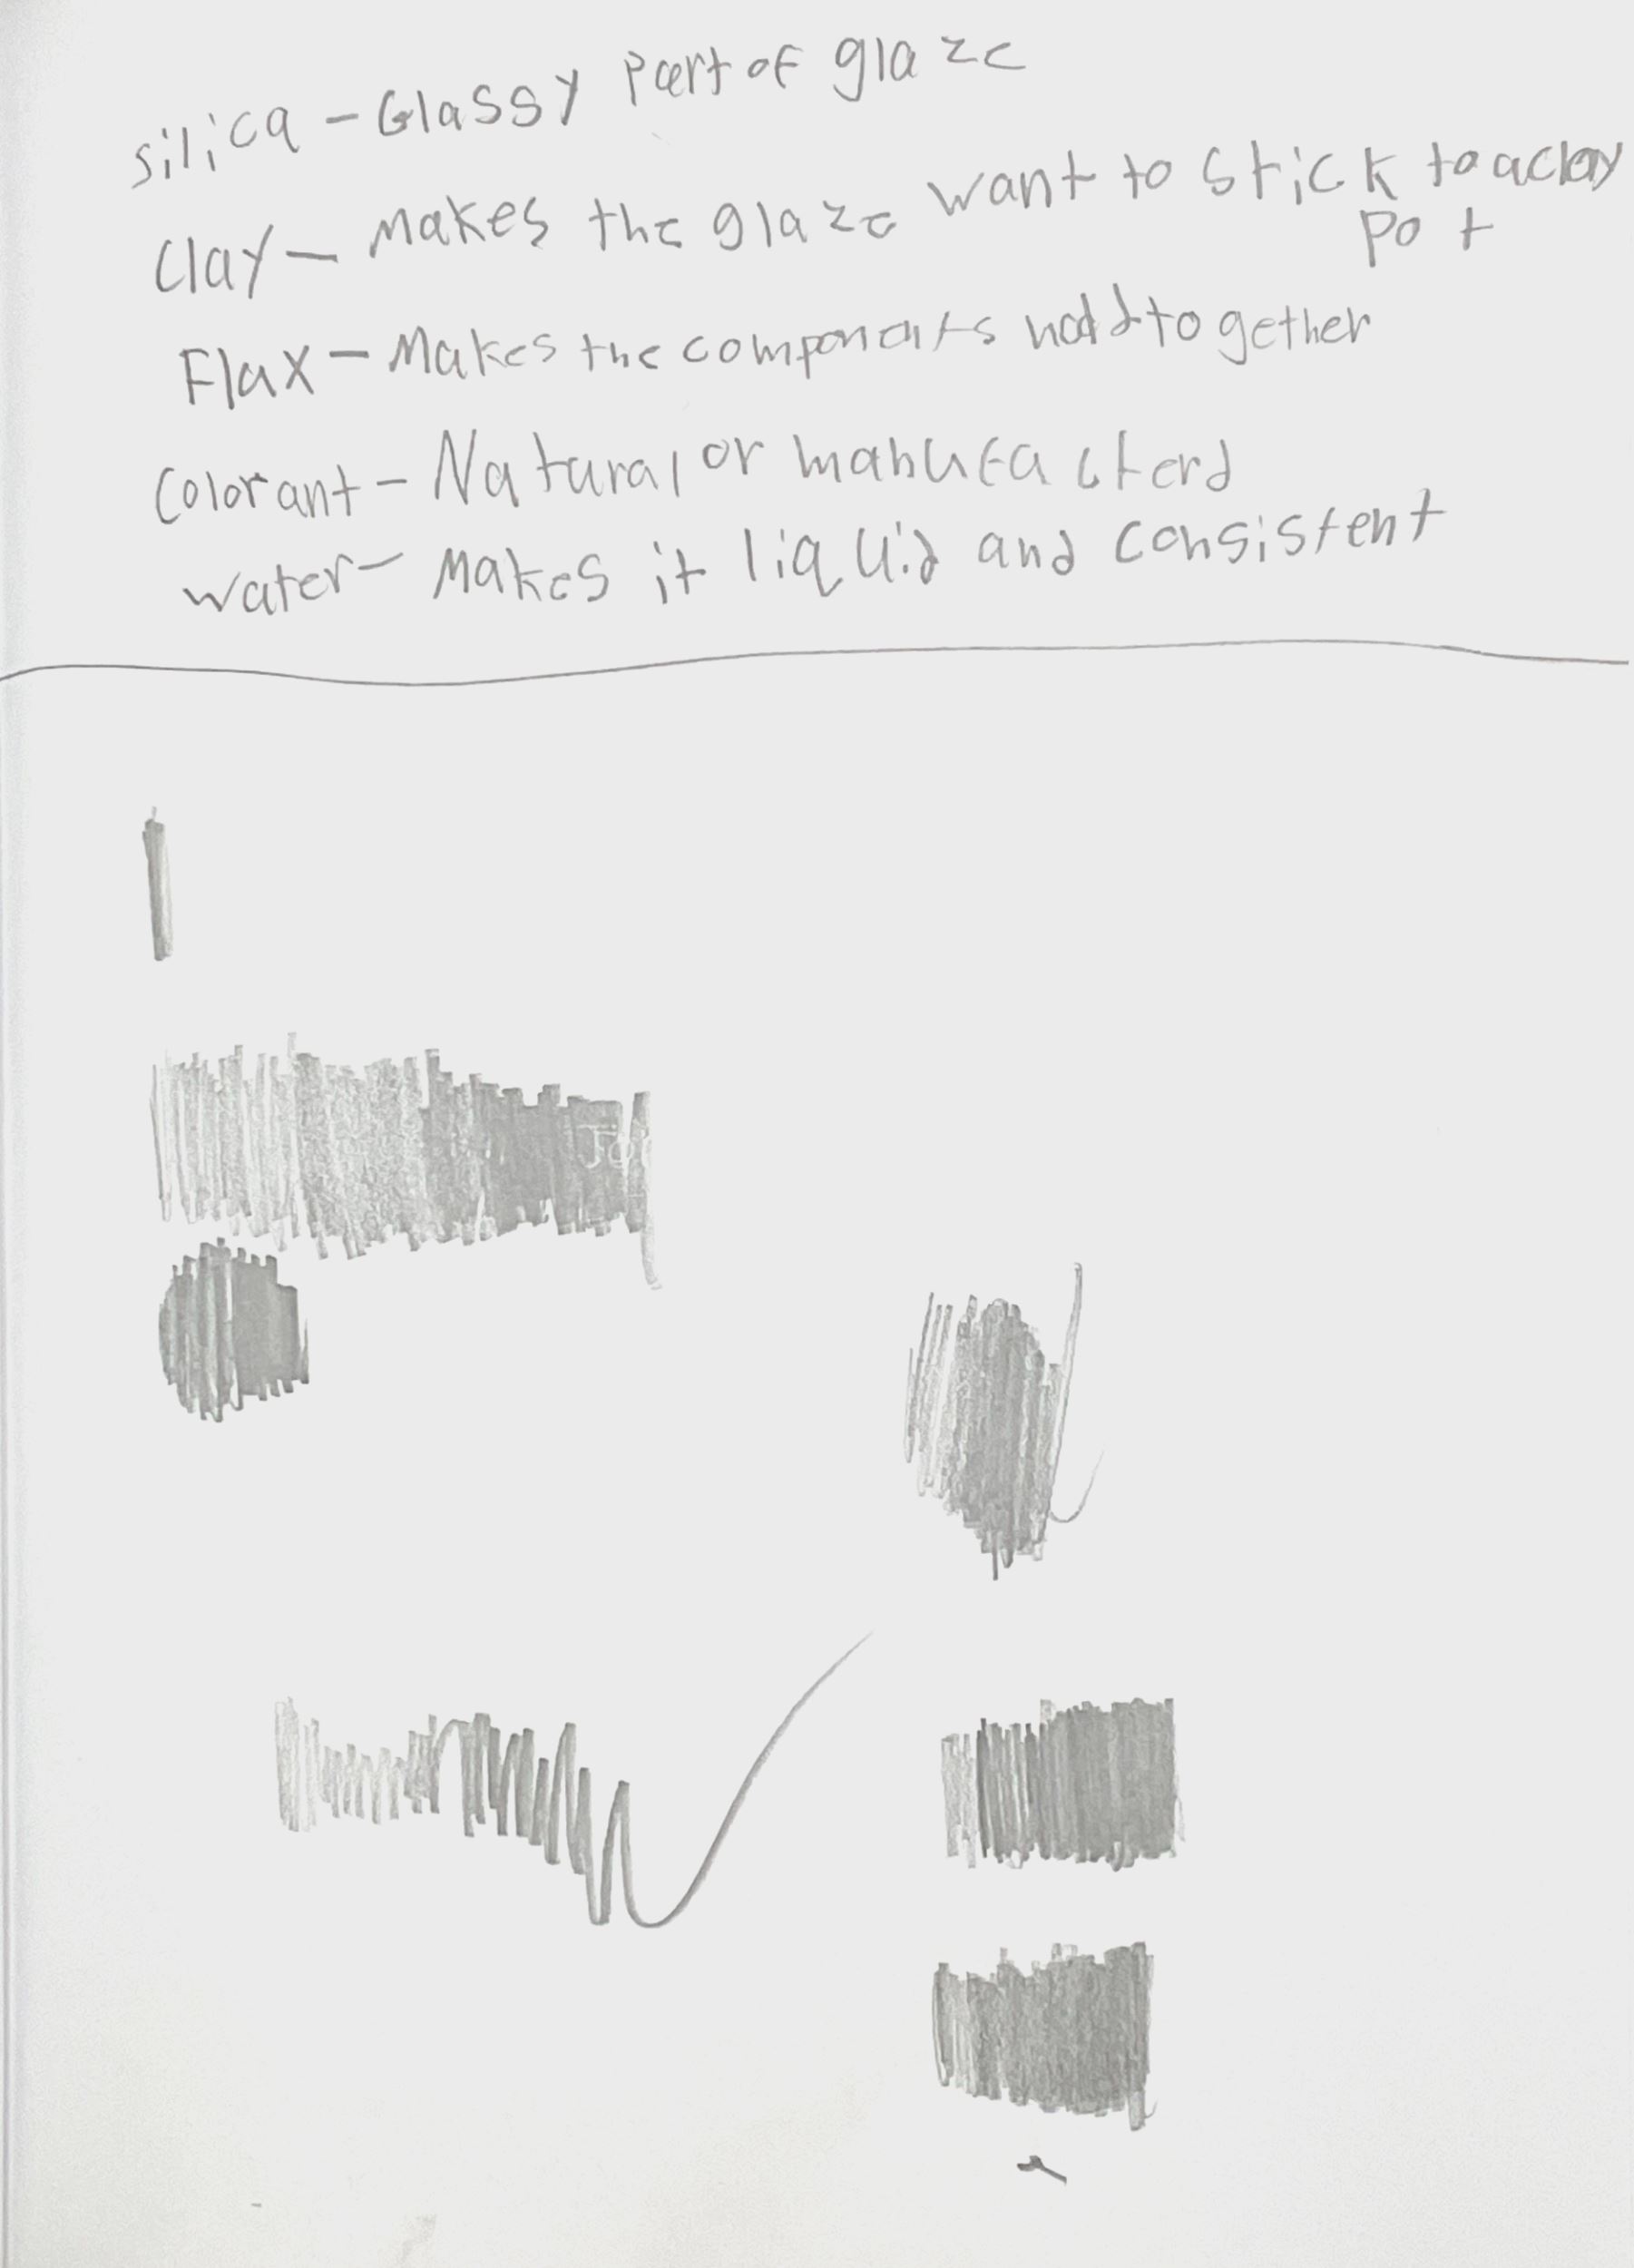 silica - Glassy Part of glaze
Clay - Makes the glaze want to stick to a clay
Pot
Flax - Makes the components hold together
Colorant - Natural or manufacterd
water - Makes it liquid and consistent